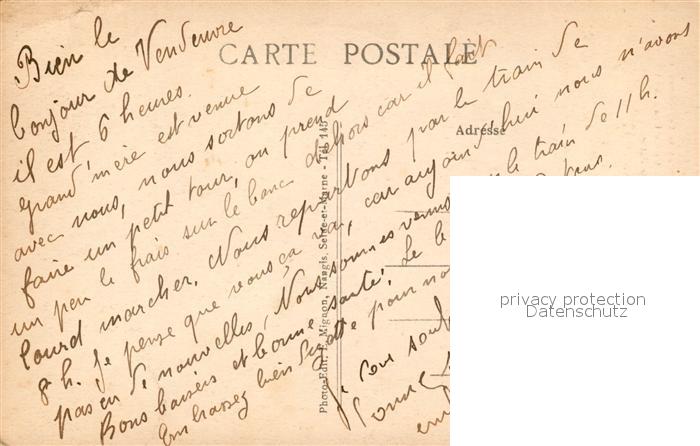 CARTE POSTALE
Adresse
Bien le
bonjour de Vendeuvre
il est 6 heures.
grand'mère est venue
avec nous, nous sortons de
faire un petit tour, on prend
un peu le frais sur le banc dehors car il fait
lourd marcher. Nous repartons par le train de
8 h. je pense que vous ça va, car aujourd'hui nous n'avons
pas eu de nouvelles, Nous sommes venus le train de 11 h.
Bons baisers et bonne santé. Le
Embrassez bien pour
je vous
Photo-Edit. E. Mignon, Nangis, Seine-et-Marne - Tél. 143
privacy protection
Datenschutz